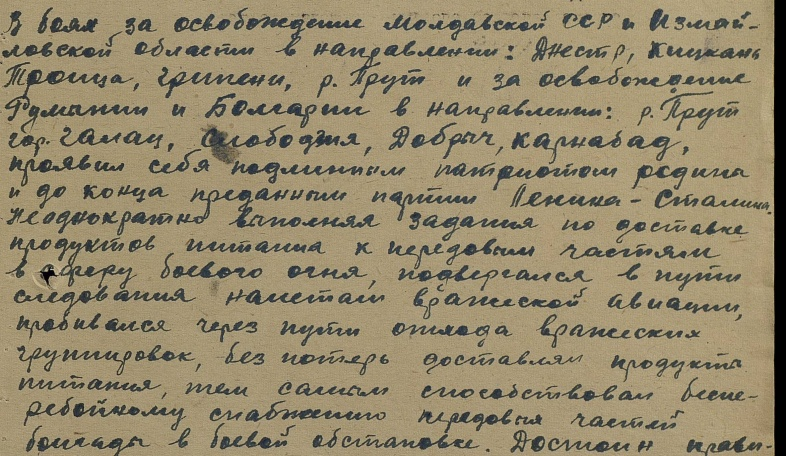 В боях за освобождение Молдавской ССР и Измаи-
ловской области в направлении: Днестр, Кицкань
Троица, Грипени, р. Прут и за освобождение
Румынии и Болгарии в направлении: р. Прут
гор. Галац, Слободзея, Добрыч, Карнабад,
проявил себя подлинным патриотом родины
и до конца преданным партии Ленина-Сталина.
Неоднократно выполняя задания по доставке
продуктов питания к передовым частям
в сферу боевого огня, подвергался в пути
следования налетам вражеской авиации,
пробивался через пути отхода вражеских
группировок, без потерь доставлял продукты
питания, тем самым способствовал беспе-
ребойному снабжению передовых частей
бригады в боевой обстановке. Достоин прави-